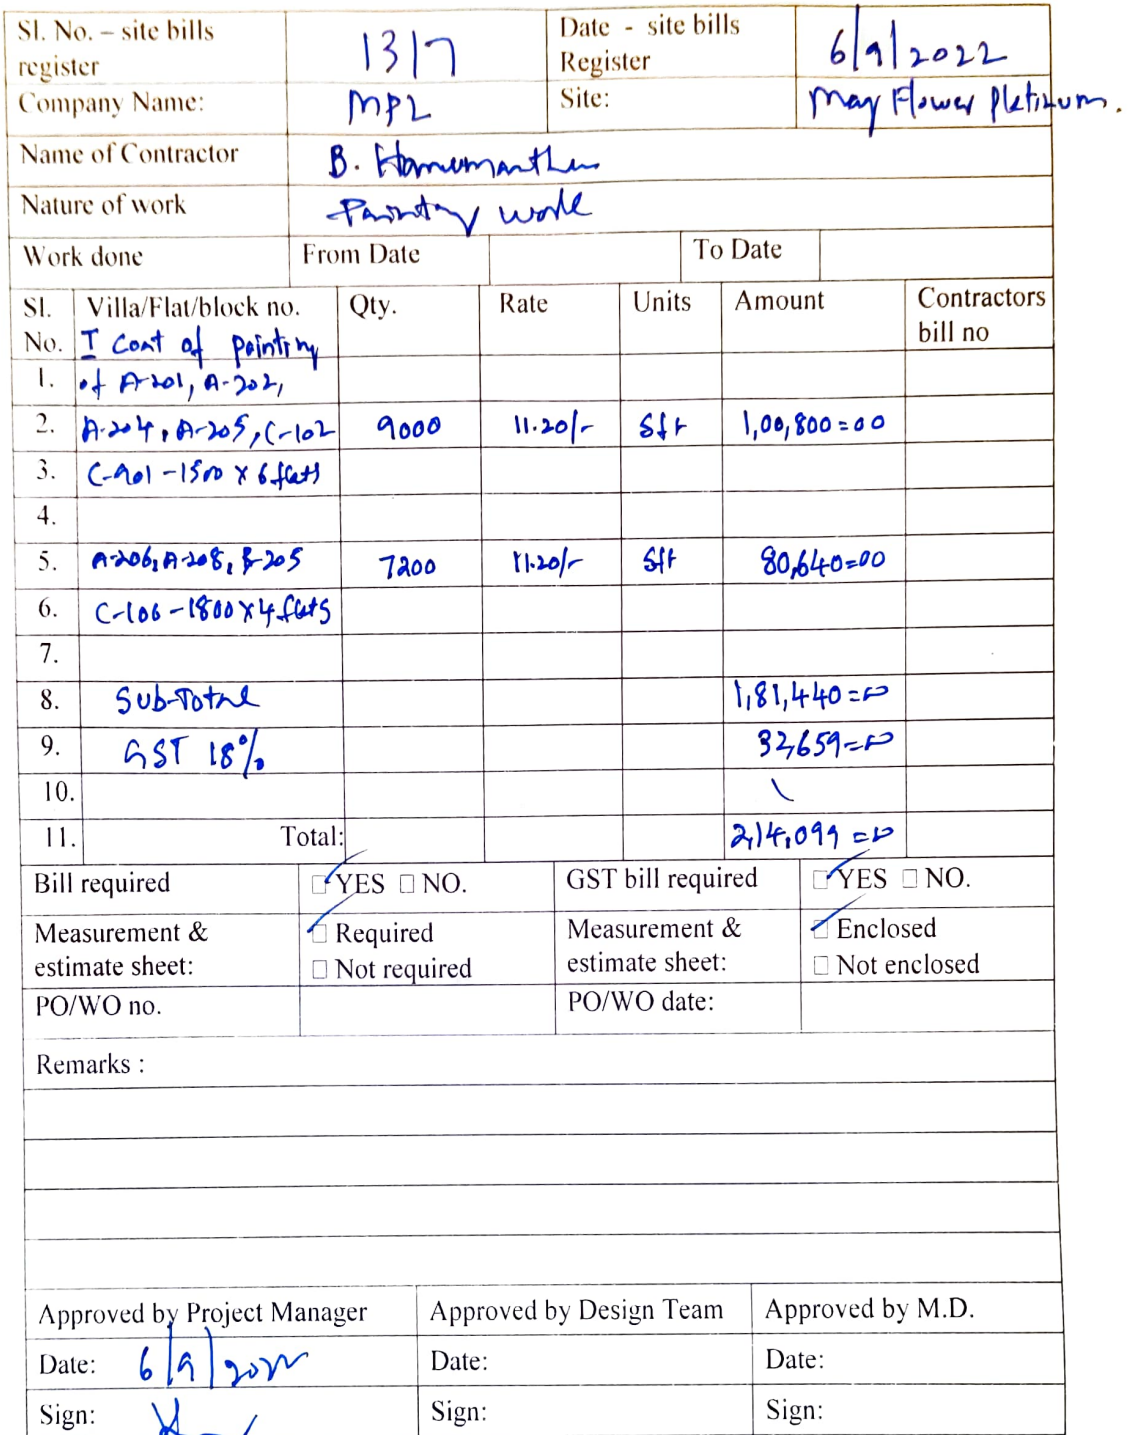 Sl. No. – site bills register 13/7 Date - site bills Register 6/9/2022
Company Name: MPL Site: May Flower Platinum.
Name of Contractor B. Hanumanthu
Nature of work Painting work
Work done From Date To Date
Sl. No. Villa/Flat/block no. Qty. Rate Units Amount Contractors bill no
I Coat of painting
1. of A-201, A-202,
2. A-204, A-205, C-102 9000 11.20/- Sft 1,00,800=00
3. C-901 - 1500 x 6 flats
4.
5. A-206, A-208, B-205 7200 11.20/- Sft 80,640=00
6. C-106 - 1800 x 4 flats
7.
8. Sub-Total 1,81,440=00
9. GST 18% 32,659=00
10.
11. Total: 2,14,099=00
Bill required YES NO. GST bill required YES NO.
Measurement & estimate sheet: Required Not required Measurement & estimate sheet: Enclosed Not enclosed
PO/WO no. PO/WO date:
Remarks :
Approved by Project Manager Approved by Design Team Approved by M.D.
Date: 6/9/2022 Date: Date:
Sign: Sign: Sign: